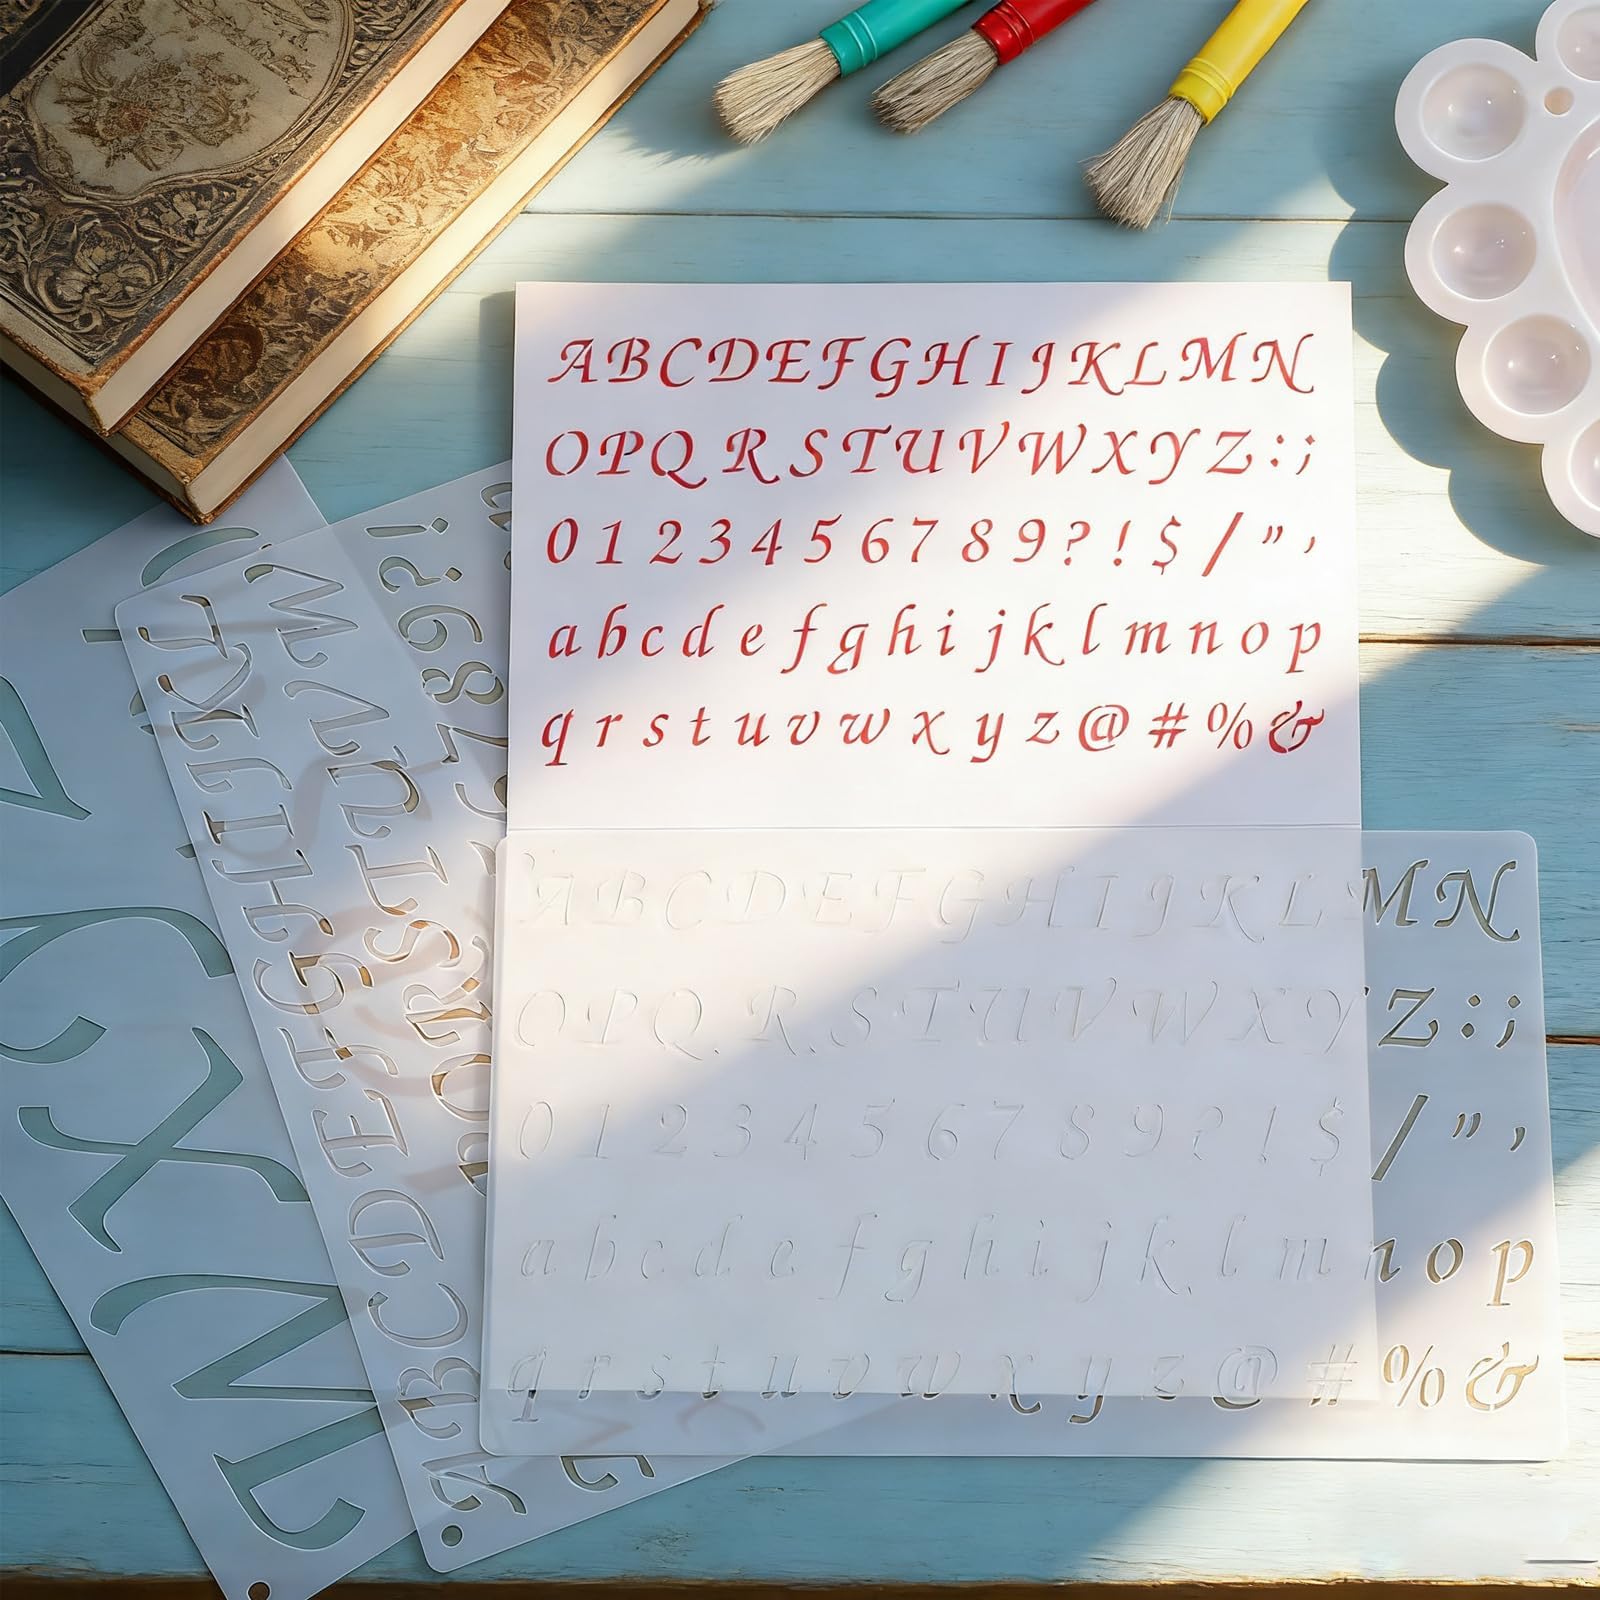 A B C D E F G H I J K L M N
O P Q R S T U V W X Y Z : ;
0 1 2 3 4 5 6 7 8 9 ? ! $ / " '
a b c d e f g h i j k l m n o p
q r s t u v w x y z @ # % &
A B C D E F G H I J K L M N
O P Q R S T U V W X Y Z : ;
0 1 2 3 4 5 6 7 8 9 ? ! $ / " '
a b c d e f g h i j k l m n o p
q r s t u v w x y z @ # % &
A B C D E F G H I J K L
P Q R S T U V W
6 7 8 9 ? !